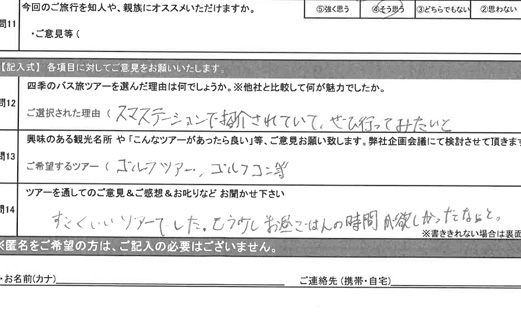 今回のご旅行を知人や、親族にオススメいただけますか。
⑤強く思う ④そう思う ③どちらでもない ②思わない
問11
・ご意見等（
【記入式】各項目に対してご意見をお願いいたします。
四季のバス旅ツアーを選んだ理由は何でしょうか。※他社と比較して何が魅力でしたか。
問12
ご選択された理由（ スマステーションで紹介されていて、ぜひ行ってみたいと
興味のある観光名所 や「こんなツアーがあったら良い」等、ご意見お願い致します。弊社企画会議にて検討させて頂きます
問13
ご希望するツアー（ ゴルフツアー、ゴルフコン等
ツアーを通してのご意見＆ご感想＆お叱りなど お聞かせ下さい
問14
すごくいいツアーでした。もう少しお昼ごはんの時間が欲しかったなぁと。
※書ききれない場合は裏面
※匿名をご希望の方は、ご記入の必要はございません。
・お名前(カナ)
ご連絡先（携帯・自宅）